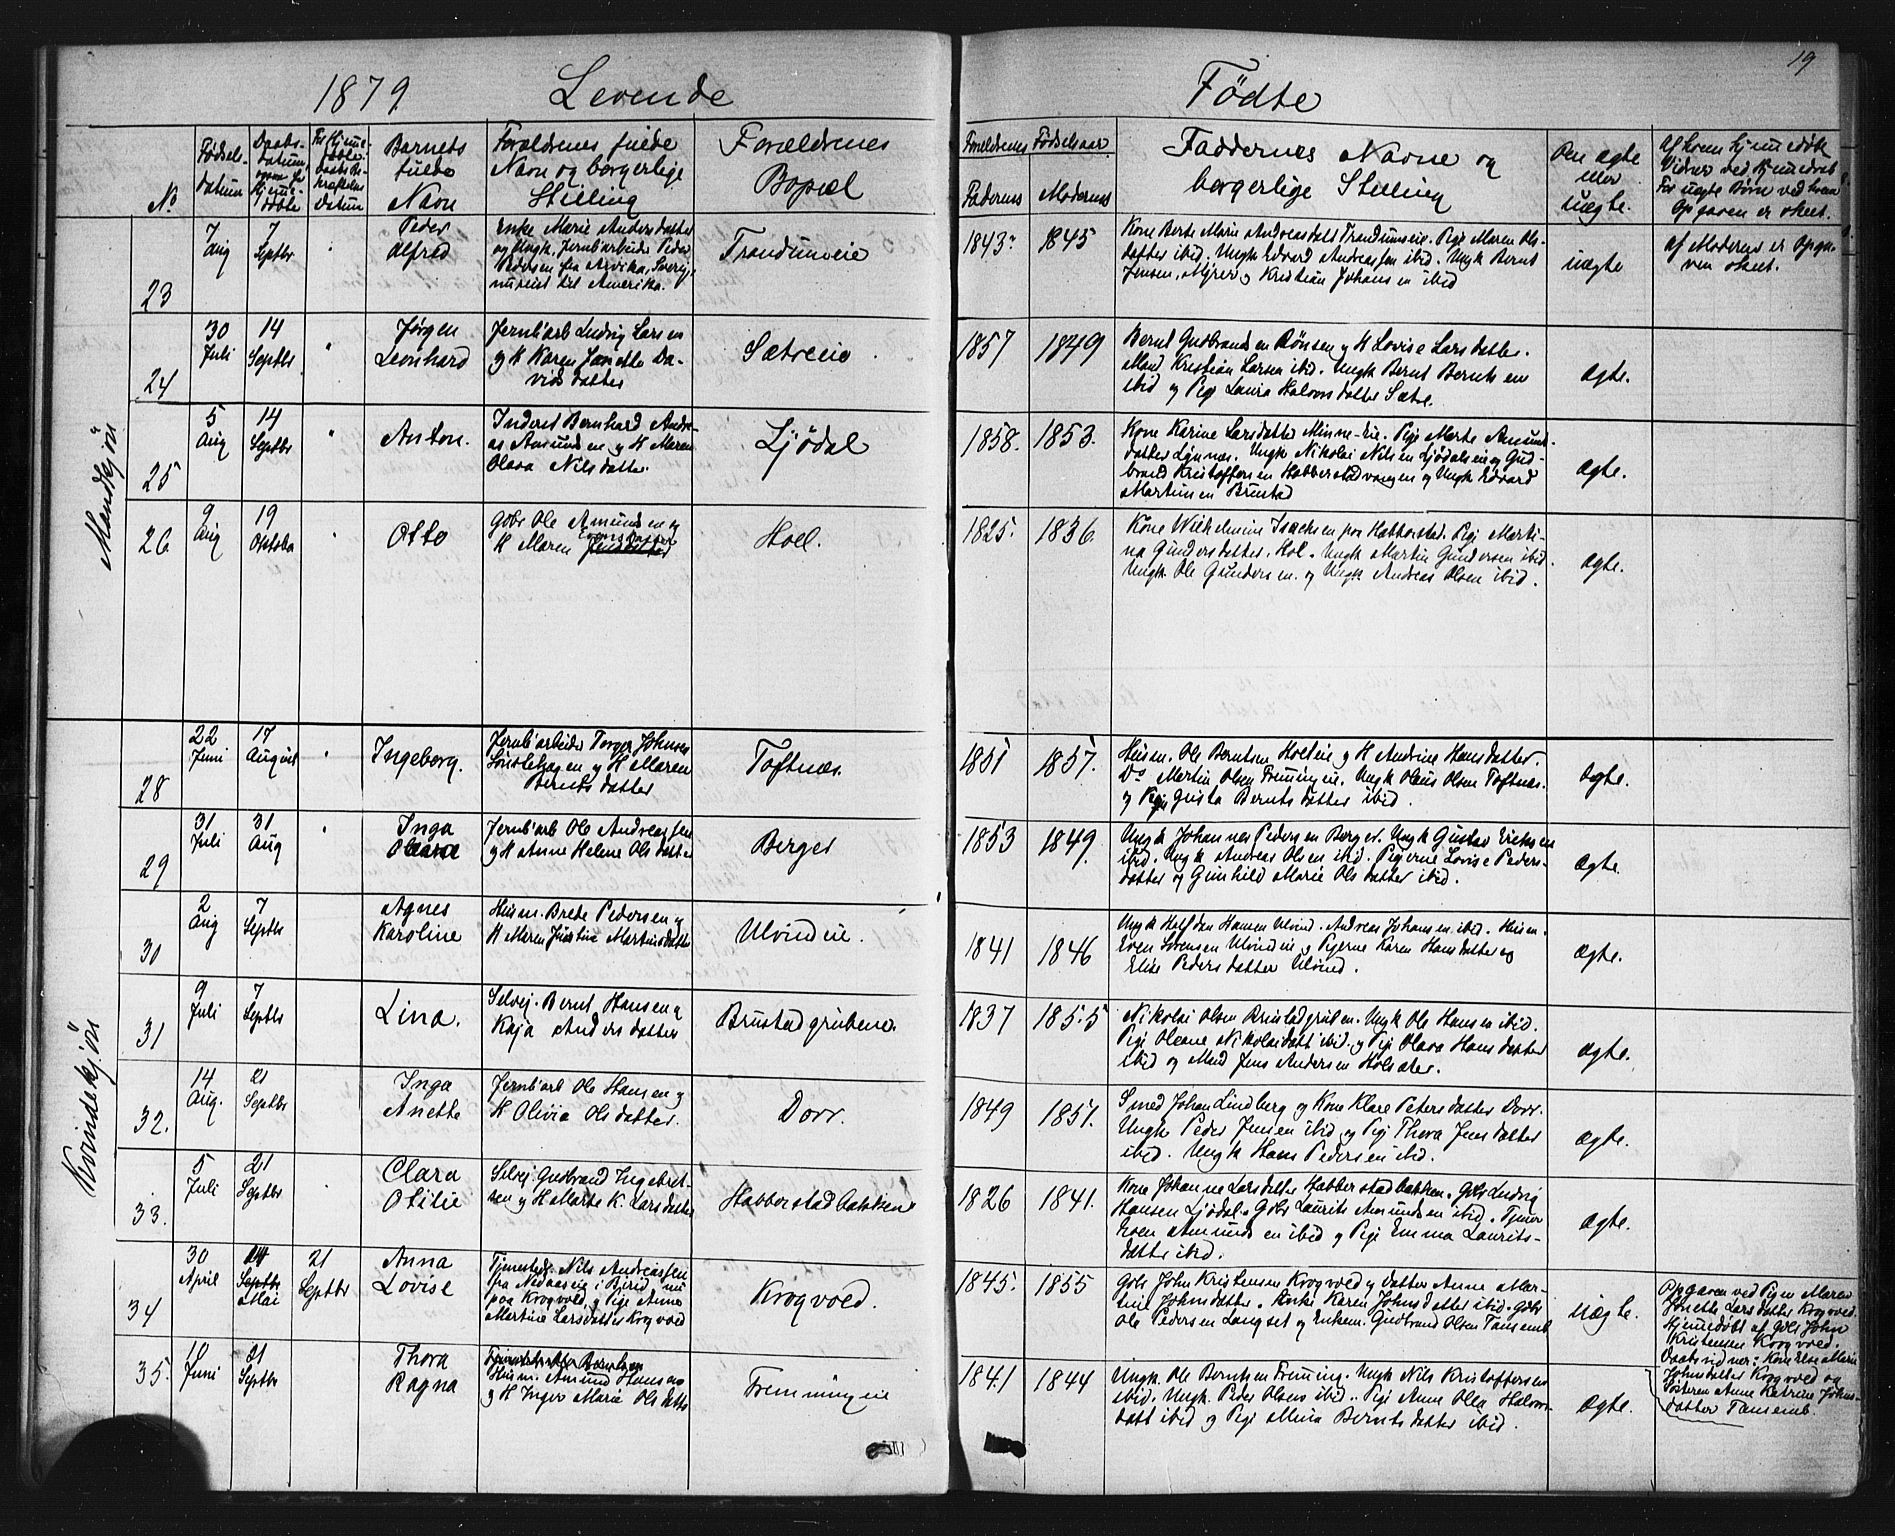 19
1879 Levende Fødte
No
Fødsels-
datum
Daabs-
datum
Barnets
fulde
Navn
Forældrenes fulde
Navn og borgerlige
Stilling
Forældrenes
Bopæl
Forældrenes Fødselsaar
Faderens Moderens
Faddernes Navne og
borgerlige Stilling
Om ægte
eller
uægte.
Af hvem hjemmedøbt
Vidner ved hjemmedaab
For uægte Børn ved hvem
Opgaven er skeet.
Mandkjøn
23
7
Aug
7
Septbr
Peder
Alfred
Enke Marie Andersdatter
og Ungk. Jernb'arbeider Peder
Pedersen fra Arvika, Sverige
nu reist til Amerika.
Trandumeie
1843 1845
Kone Berte Marie Andreasdatt Trandumseie. Pige Maren Ols-
datter ibid. Ungk Edvard Andreassen ibid. Ungk Bernt
Jensen, Myrer og Kristian Johansen ibid
uægte
af Moderen er Opga-
ven skeet.
24
30
Juli
14
Septbr
Jørgen
Leonhard
Jernb'arb Ludvig Larsen
og H Karen Janette Da-
vidsdatter
Sætreeie
1857 1849
Bernt Gudbrandsen Rønsen og H Lovise Larsdatter.
Mand Kristian Larsen ibid. Ungk Bernt Berntsen
ibid og Pige Laura Halvorsdatter Sætre.
ægte.
25
5
Aug
14
Septbr
Anton.
Inderst Bernhard Andre-
as Amundsen og H Maren
Olava Nilsdatter.
Ljødal
1858. 1853.
Kone Karine Larsdatter Minne-Eie. Pige Marte Amunds-
datter Lynnes. Ungk Nikolai Nilsen Ljødalseie og Gud-
brand Kristoffersen Habberstadvangen og Ungk Edvard
Martinsen Brustad
ægte.
26.
9
Aug
19
Octobr
Otto
Gbr Ole Amundsen og
H Maren
Hoel.
1825. 1836.
Kone Wilhelmine Isachsen fra Habberstad. Pige Marti-
na Gundersdatter. Hol. Ungk Martin Gundersen ibid.
Ungk Ole Gundersen. og Ungk Andreas Olsen ibid.
ægte.
Kvindekjøn
28
22
Juni
17
August
Ingeborg.
Jernb'arbeider Torger Johnsen
og H Maren
Berntsdatter
Toftnæs.
1851 1857.
Husm. Ole Berntsen Holseie og H Andrine Hansdatter.
Do Martin Olsen Fremingeie. Ungk Olaus Olsen Toftnæs.
og Pige Gusta Berntsdatter ibid.
ægte.
29
31
Juli
31
Aug
Inga
Olava
Jernb'arb Ole Andreassen
og H Anne Helene Olsdatter
Berger
1853 1849.
Ungk Johannes Pedersen Berger. Ungk Gustav Eriksen
ibid. Ungk Andreas Olsen ibid. Pigerne Lovise Peders-
datter og Gunhild Marie Olsdatter ibid.
ægte.
30
2
Aug
7
Septbr
Agnes
Karoline
Husm. Brede Pedersen og
H Maren Justine Martinsdatter
Ulvindeie.
1841 1846
Ungk Halfdan Hansen Ulvind. Andreas Johansen ibid. Husm.
Even Sørensen Ulvindeie og Pigerne Karen Hansdatter og
Elise Pedersdatter Ulvind.
ægte.
31
9
Juli
7
Septbr
Lina.
Selvej. Bernt Hansen og
Kaja Andersdatter
Brustadgrubene.
1837 1855
Nikolai Olsen Brustadgruben. Ungk Ole Hansen ibid.
Pige Oleane Nikolaidatt ibid. og Pige Olava Hansdatter
ibid og Mand Jens Andersen Holsæter.
ægte.
32.
14
Aug.
21
Septbr
Inga
Anette
Jernb'arb Ole Hansen og
H Olivia Olsdatter.
Dorr.
1849 1857.
Smed Johan Lindberg og Kone Klare Petersdatter Dorr.
Ungk Peder Jensen ibid og Pige Thora Jensdatter
ibid. Ungk Hans Pedersen ibid.
ægte.
33.
5
Juli
21
Septbr
Clara
Otilie
Selvej. Gudbrand Ingebret-
sen og H Marte K. Larsdatter
Habberstadbakken
1826 1841.
Kone Johanne Larsdatter Habberstadbakken. Gbr Ludvig
Hansen Ljødal. Gbr Laurits Amundsen ibid. Tjener
Amundsen ibid og Pige Emma Laurits-
datter ibid.
ægte.
34
30
April
Septbr
Mai
21
Septbr
Anna
Lovise
Tjenestedr. Nils Andreassen
fra i nu
paa Krogvold, og Pige Anne
Martine Larsdatter Krogvold
Krogvold.
1845. 1855
Gbr John Kristensen Krogvold og datter Anne Mar-
tine Johnsdatter. Enke Karen Johnsdatter ibid. Gbr
Ole Pedersen Langset og Enkem. Gudbrand Olsen Tansemb
uægte.
Opgaven ved Pigen Maren
Jonette Larsdatter Krogvold.
Hjemmedøbt af Gbr John
Kristensen Krogvold.
Daabsvidner: Kone Else Marie
Johnsdatter Krogvold og
Søsteren Anne Katrine Johns-
datter Tansemb.
35.
Juni
21
Septbr
Thora
Ragna
Husm. Amund Hansen
og H Inger Marie Olsdatter
Fremmingeie
1841 1844
Ungk. Ole Berntsen Freming. Ungk Nils Kristoffersen
ibid. Ungk. Peder Olsen ibid. Pige Anne Olea Halvors-
datt ibid og Pige Mina Berntsdatter ibid.
ægte.